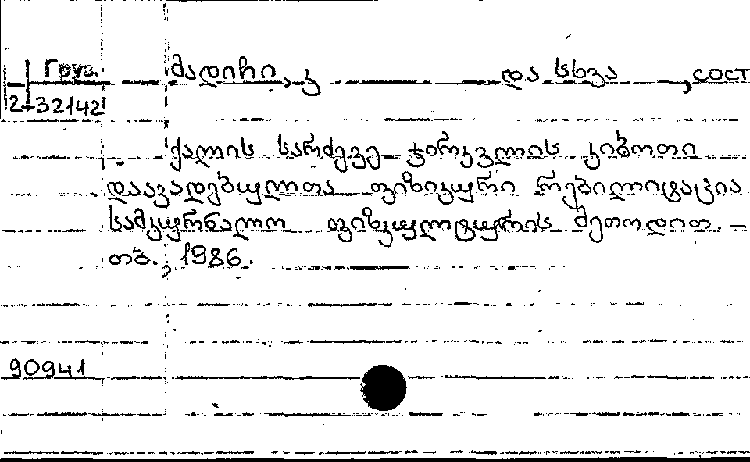 Груз. მადირი, კ და სხვა, сост
2-32142
ქალის სარძევე ჯირკვლის კიბოთი
დაავადებულთა ფიზიკური რებილიტაცია
სამკურნალო ფიზკულტურის მეთოდით. –
თბ., 1986.
90941